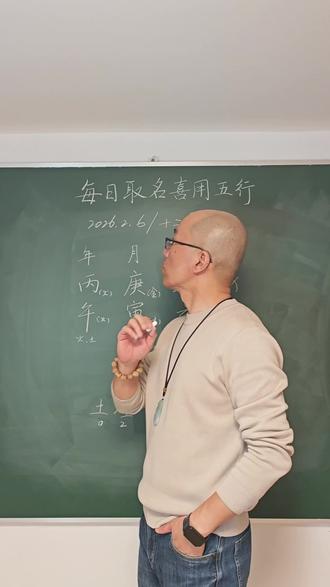 每日取名喜用五行
2026.2.6/十
年 月
丙(火) 庚(金)
午(火) 寅
火.土
土
0 2